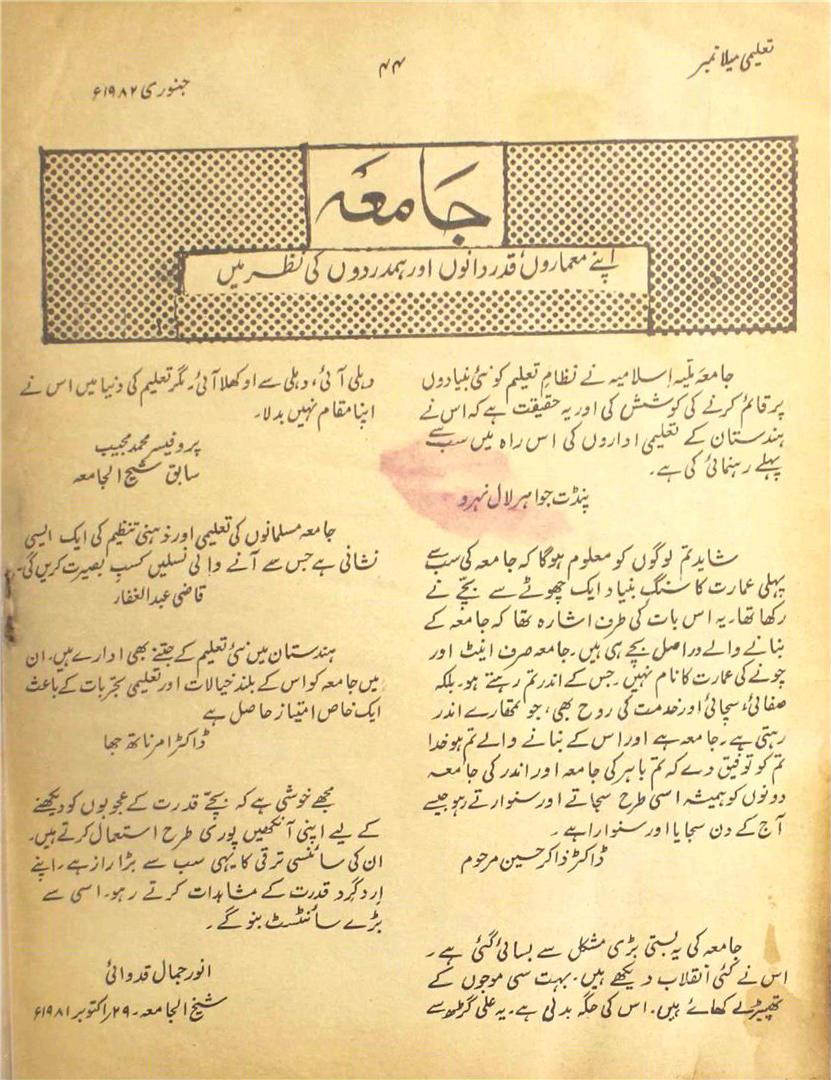 تعلیمی میلا نمبر
۴۴
جنوری ۱۹۸۲ء
جامعہ
اپنے معماروں، قدردانوں اور ہمدردوں کی نظر میں
جامعہ ملیہ اسلامیہ نے نظامِ تعلیم کو نئی بنیادوں
پر قائم کرنے کی کوشش کی اور یہ حقیقت ہے کہ اس نے
ہندستان کے تعلیمی اداروں کی اس راہ میں سب سے
پہلے رہنمائی کی ہے۔
پنڈت جواہر لال نہرو
شاید تم لوگوں کو معلوم ہوگا کہ جامعہ کی سب سے
پہلی عمارت کا سنگِ بنیاد ایک چھوٹے سے بچّے نے
رکھا تھا۔ یہ اس بات کی طرف اشارہ تھا کہ جامعہ کے
بنانے والے دراصل بچے ہی ہیں۔ جامعہ صرف اینٹ اور
چونے کی عمارت کا نام نہیں۔ جس کے اندر تم رہتے ہو۔ بلکہ
صفائی، سچائی اور خدمت کی روح بھی، جو تمھارے اندر
رہتی ہے۔ جامعہ ہے اور اس کے بنانے والے تم ہو خدا
تم کو توفیق دے کہ تم باہر کی جامعہ اور اندر کی جامعہ
دونوں کو ہمیشہ اسی طرح سجاتے اور سنوارتے رہو جیسے
آج کے دن سجایا اور سنوارا ہے۔
ڈاکٹر ذاکر حسین مرحوم
جامعہ کی یہ بستی بڑی مشکل سے بسائی گئی ہے۔
اس نے کئی انقلاب دیکھے ہیں۔ بہت سی موجوں کے
تھپیڑے کھائے ہیں۔ اس کی جگہ بدلی ہے۔ یہ علی گڑھ سے
دہلی آئی، دہلی سے اوکھلا آئی۔ مگر تعلیم کی دنیا میں اس نے
اپنا مقام نہیں بدلا۔
پروفیسر محمد مجیب
سابق شیخ الجامعہ
جامعہ مسلمانوں کی تعلیمی اور ذہنی تنظیم کی ایک ایسی
نشانی ہے جس سے آنے والی نسلیں کسبِ بصیرت کریں گی۔
قاضی عبدالغفار
ہندستان میں نئی تعلیم کے جتنے بھی ادارے ہیں۔ ان
میں جامعہ کو اس کے بلند خیالات اور تعلیمی تجربات کے باعث
ایک خاص امتیاز حاصل ہے
ڈاکٹر امرناتھ جھا
مجھے خوشی ہے کہ بچّے قدرت کے عجوبوں کو دیکھنے
کے لیے اپنی آنکھیں پوری طرح استعمال کرتے ہیں۔
ان کی سائنسی ترقی کا یہی سب سے بڑا راز ہے۔ اپنے
اِردگرد قدرت کے مشاہدات کرتے رہو۔ اسی سے
بڑے سائنٹسٹ بنو گے۔
انور جمال قدوائی
شیخ الجامعہ۔ ۲۹ اکتوبر ۱۹۸۱ء